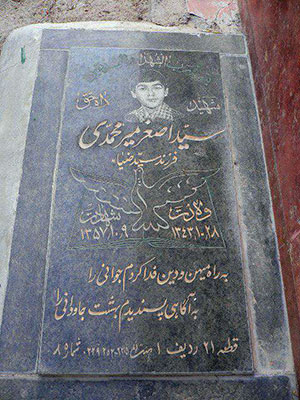 شهید راه حق
سید اصغر میرمحمدی
فرزند سید ضیاء
ولادت شهادت
۱۳۴۳/۱۰/۲۸ ۱۳۵۷/۱۰/۹
به راه میهن و دین فدا کردم جوانی را
به آگاهی پسندیدم بهشت جاودانی را
قطعه ۲۱ ردیف ۱ شماره ۸